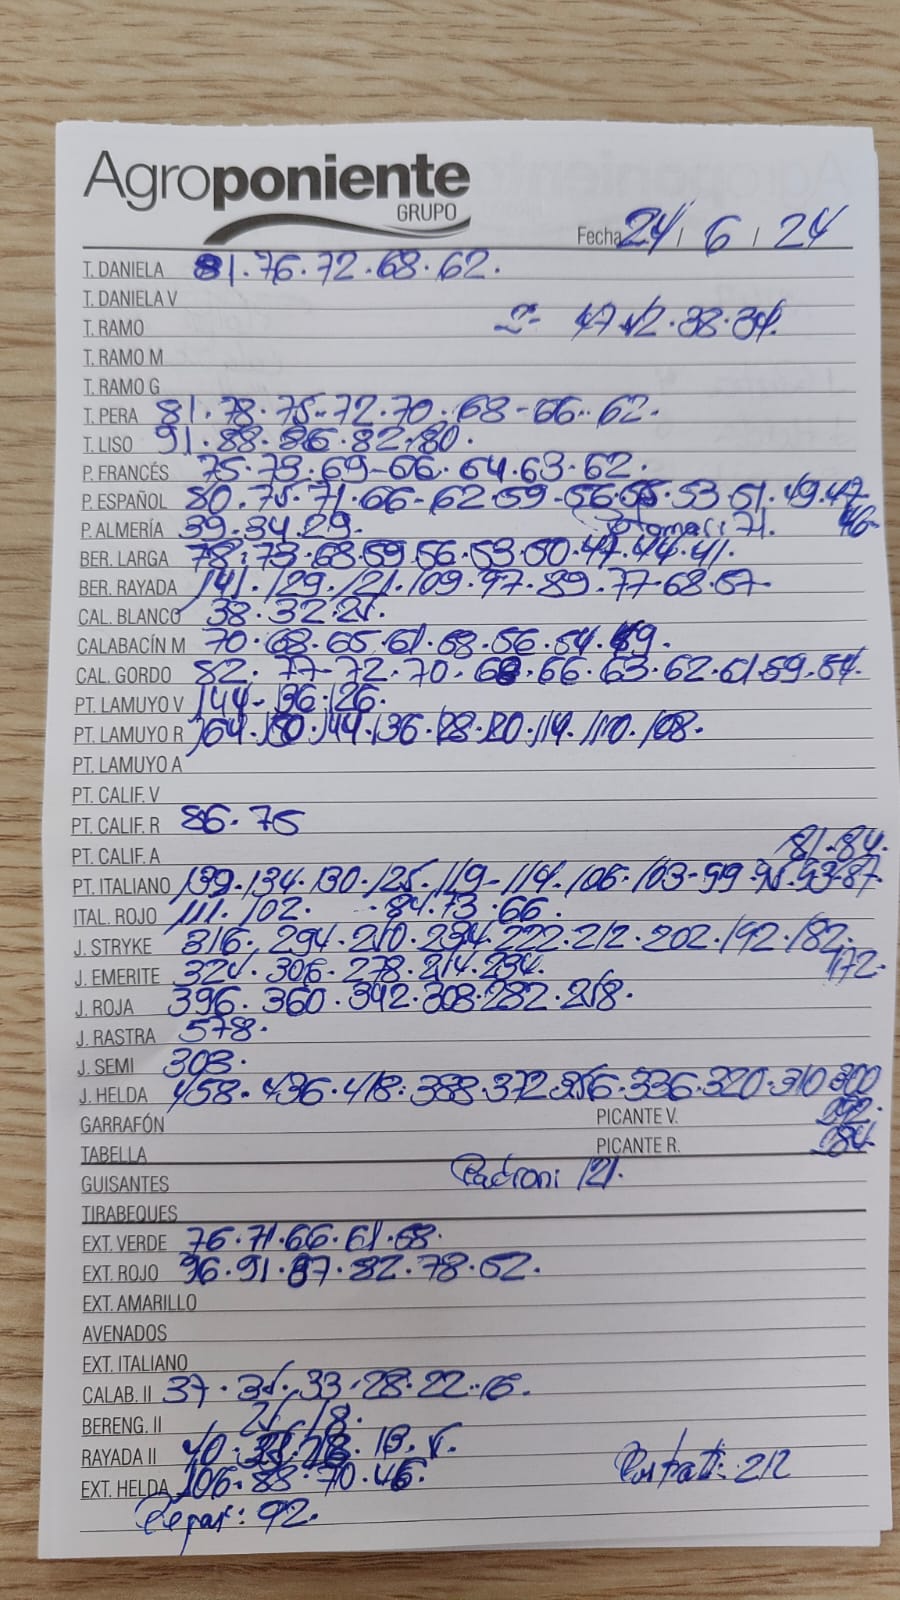 Agroponiente
GRUPO
Fecha 24 / 6 / 24
T. DANIELA 81.76.72.68.62.
T. DANELA V
T. RAMO 2ª- 47.42.38.34.
T. RAMO M
T. RAMO G
T. PERA 81.78.75-72.70.68-66.62.
T. LISO 91.88.86.82.80.
P. FRANCÉS 75.73.69-66.64.63.62.
P. ESPAÑOL 80.75.71.66-62.59-56.55.53.51.49.47.
46-
P. ALMERÍA 39.34.29. 71.
BER. LARGA 78.73.68.59.56.53.50.47.44.41.
BER. RAYADA 141.129.121.109.97.89.77-68.57-
CAL. BLANCO 38.32.25.
CALABACÍN M 70.68.65.61.58.56.54.49.
CAL. GORDO 82.77-72.70.68.66.63.62.61.59.54.
PT. LAMUYO V 144-136.126.
PT. LAMUYO R 164.150.144.136.128.120.114.110.108.
PT. LAMUYO A
PT. CALIF. V
PT. CALIF. R 86.75
PT. CALIF. A
81.84.
PT. ITALIANO 139.134.130.125.119-114.106.103-99.95.93.87.
ITAL. ROJO 111.102. 84.73.66.
J. STRYKE 316.294.250.234.222.212.202.192.182.
172.
J. EMERITE 325.306.278.254.234.
J. ROJA 396.360.342.308.282.258.
J. RASTRA 578.
J. SEMI 303.
J. HELDA 458.436.418.388.372.356.336.320.310.300
292.
284.
GARRAFÓN PICANTE V.
TABELLA PICANTE R.
GUISANTES Padroni 121.
TIRABEQUES
EXT. VERDE 76.71.66.61.58.
EXT. ROJO 96.91.87.82.78.52.
EXT. AMARILLO
AVENADOS
EXT. ITALIANO
CALAB. II 37.35.33.28.22.15.
BERENG. II 25.18.
RAYADA II 40.
EXT. HELDA 106.88.70.46.
212
92.